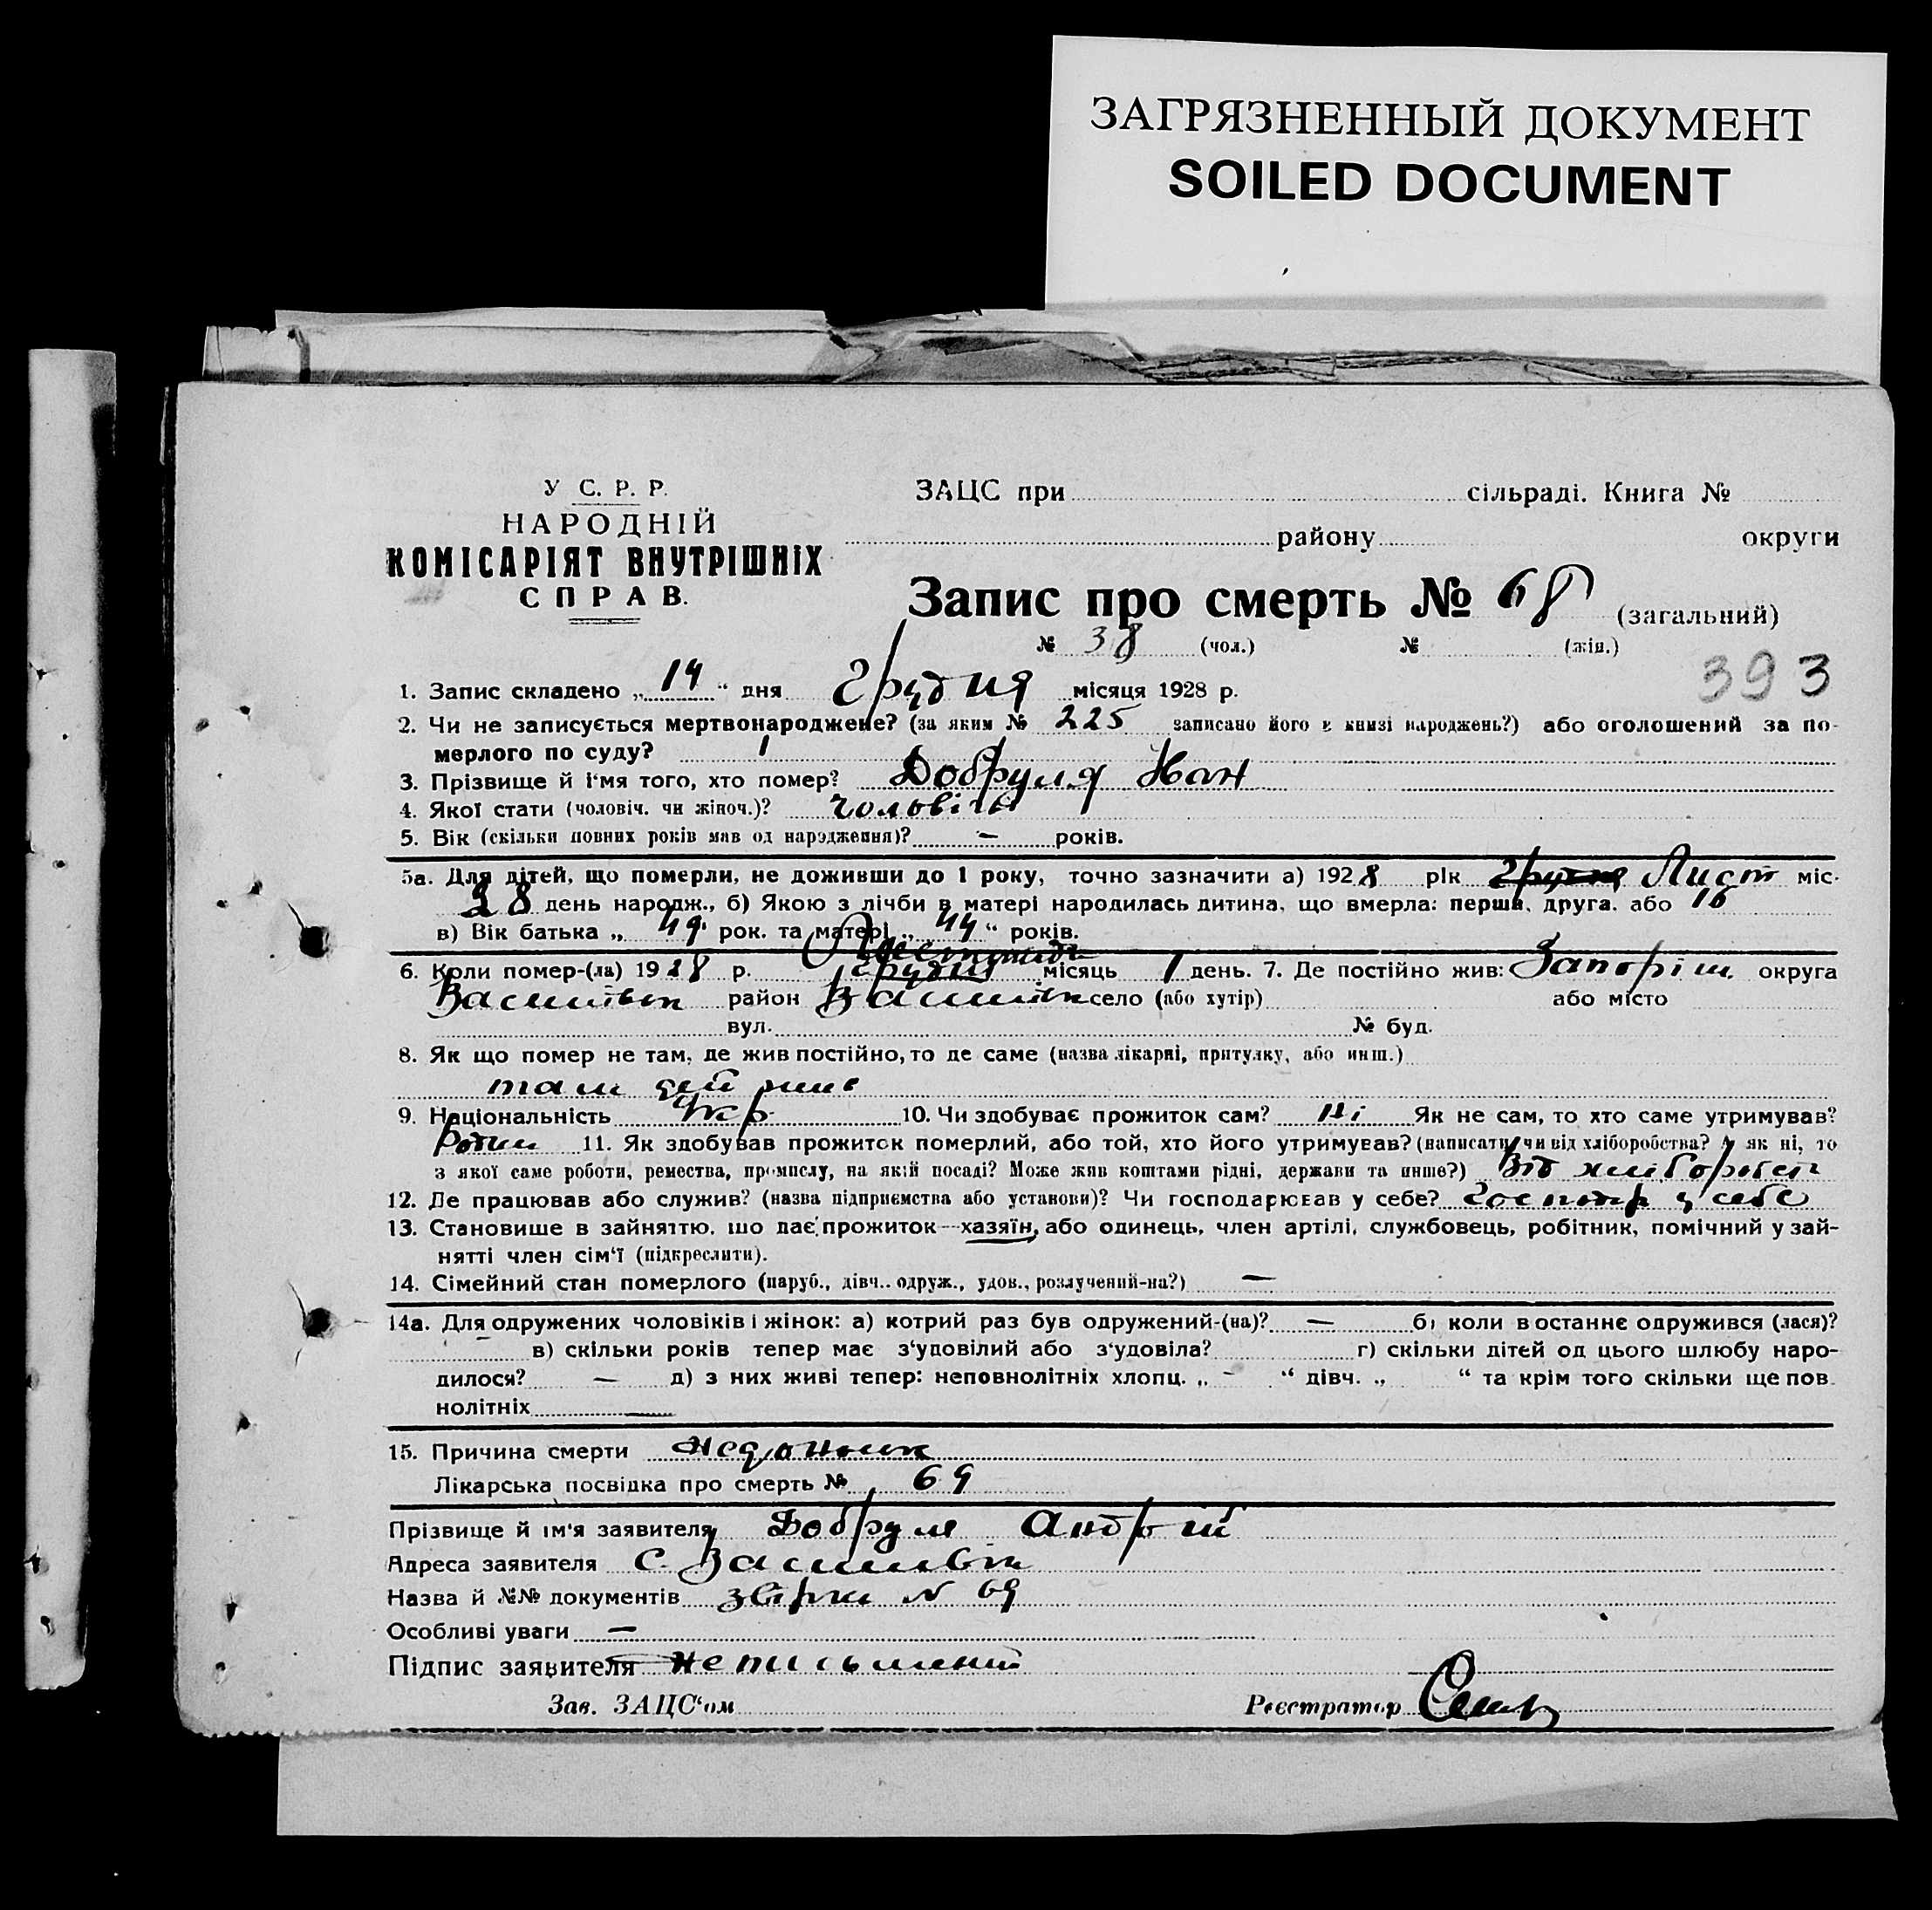 ЗАГРЯЗНЕННЫЙ ДОКУМЕНТ
SOILED DOCUMENT
У С. Р. Р.
НАРОДНІЙ
КОМІСАРІЯТ ВНУТРІШНІХ
СПРАВ.
ЗАЦС при сільраді. Книга №
району округи
Запис про смерть № 68 (загальний)
№ 38 (чол.) № (жін.)
393
1. Запис складено „14“ дня Грудня місяця 1928 р.
2. Чи не записується мертвонароджене? (за яким № 225 записано його в книзі народжень?) або оголошений за по-
мерлого по суду?
3. Прізвище й і'мя того, хто помер? Добруля
4. Якої стати (чоловіч. чи жіноч.)? чоловіч
5. Вік (скільки повних років мав од народження)? — років.
5а. Для дітей, що померли, не доживши до 1 року, точно зазначити а) 1928 рік Грудня Лист міс.
28 день народж., б) Якою з лічби в матері народилась дитина, що вмерла: перша, друга. або 16
в) Вік батька „49“ рок. та матері „44“ років.
6. Коли помер-(ла) 1928 р. Грудня Листопада місяць 1 день. 7. Де постійно жив: Запоріш. округа
Васильівк район Васильівк село (або хутір) або місто
вул. № буд.
8. Як що помер не там, де жив постійно, то де саме (назва лікарні, притулку, або инш.)
там жив
9. Національність Укр 10. Чи здобуває прожиток сам? Ні Як не сам, то хто саме утримував?
11. Як здобував прожиток померлий, або той, хто його утримував? (написати, чи від хліборобства? А як ні, то
з якої саме роботи, ремества, промислу, на якій посаді? Може жив коштами рідні, держави та инше?) Від хліборобст
12. Де працював або служив? (назва підприємства або установи)? Чи господарював у себе? Господар у себе
13. Становище в зайняттю, що дає прожиток—хазяїн, або одинець, член артілі, службовець, робітник, помічний у зай-
нятті член сім'ї (підкреслити).
14. Сімейний стан померлого (паруб., дівч.. одруж., удов., розлучений-на?) —
14а. Для одружених чоловіків і жінок: а) котрий раз був одружений-(на)? — б) коли востаннє одружився (лася)?
— в) скільки років тепер має з'уповілий або з'удовіла? г) скільки дітей од цього шлюбу наро-
дилося? — д) з них живі тепер: неповнолітніх хлопц. „ — “ дівч. „ “ та крім того скільки ще пов-
нолітніх —
15. Причина смерти недоносок
Лікарська посвідка про смерть № 69
Прізвище й ім'я заявителя Добруля Андрій
Адреса заявителя с. Васильівк
Назва й №№ документів N 69
Особливі уваги —
Підпис заявителя неписьмений
Зав. ЗАЦС'ом Реєстратор